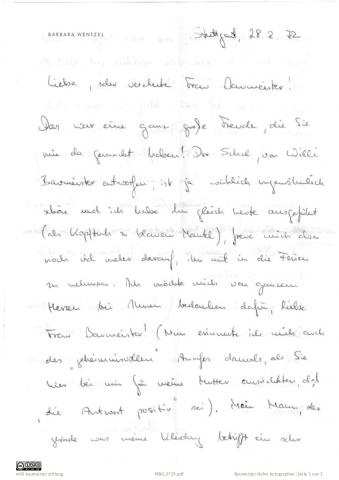 BARBARA WENTZEL
Stuttgart, 28.2.72
Liebe, sehr verehrte Frau Baumeister!
Das war eine ganz große Freude, die Sie
mir da gemacht haben! Der Schal, von Willi
Baumeister entworfen, ist ja wirklich ungewöhnlich
schön und ich habe ihn gleich heute ausgeführt
(als Kopftuch zu blauem Mantel), freue mich aber
noch viel mehr darauf, ihn mit in die Ferien
zu nehmen. Ich möchte mich von ganzem
Herzen bei Ihnen bedanken dafür, liebe
Frau Baumeister! (Nun erinnerte ich mich auch
des "geheimnisvollen" Anrufes damals, als Sie
hier bei mir für meine Mutter ausrichteten, daß
"die Antwort positiv" sei). Mein Mann, der
gerade was meine Kleidung betrifft ein sehr
willi baumeister stiftung
Baumeister-Heinn Autographen | Seite 1 von 2